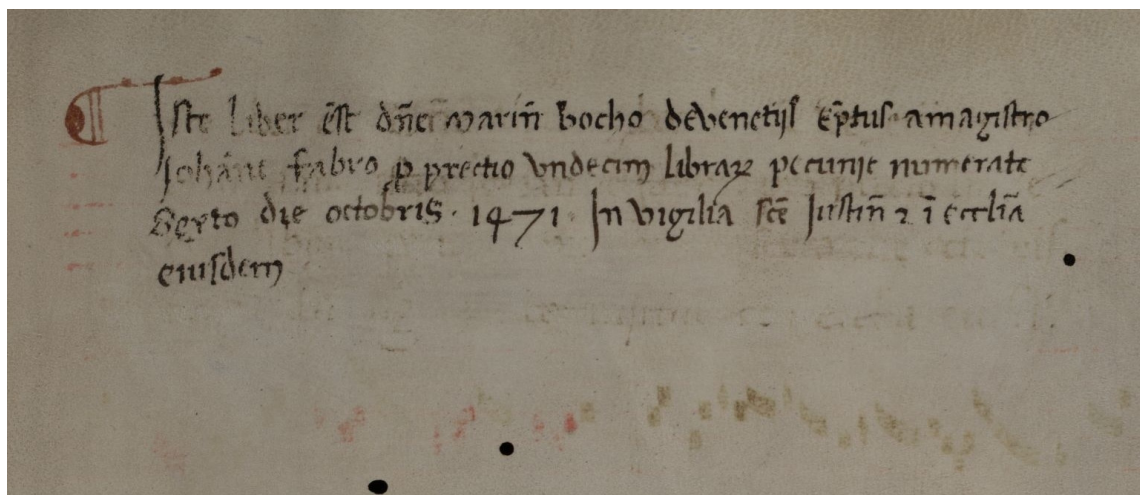 ¶ Iste liber est dn̄e marin̄ bocho de venetijs e͞ptus a magistro
Johāne fabro ꝑ precio vndecim libraꝝ pecunie numerate
Sexto die octobris · 1471 · In vigilia sc̄e Justin̄ ⁊ ī eccl̄ia
eiusdem